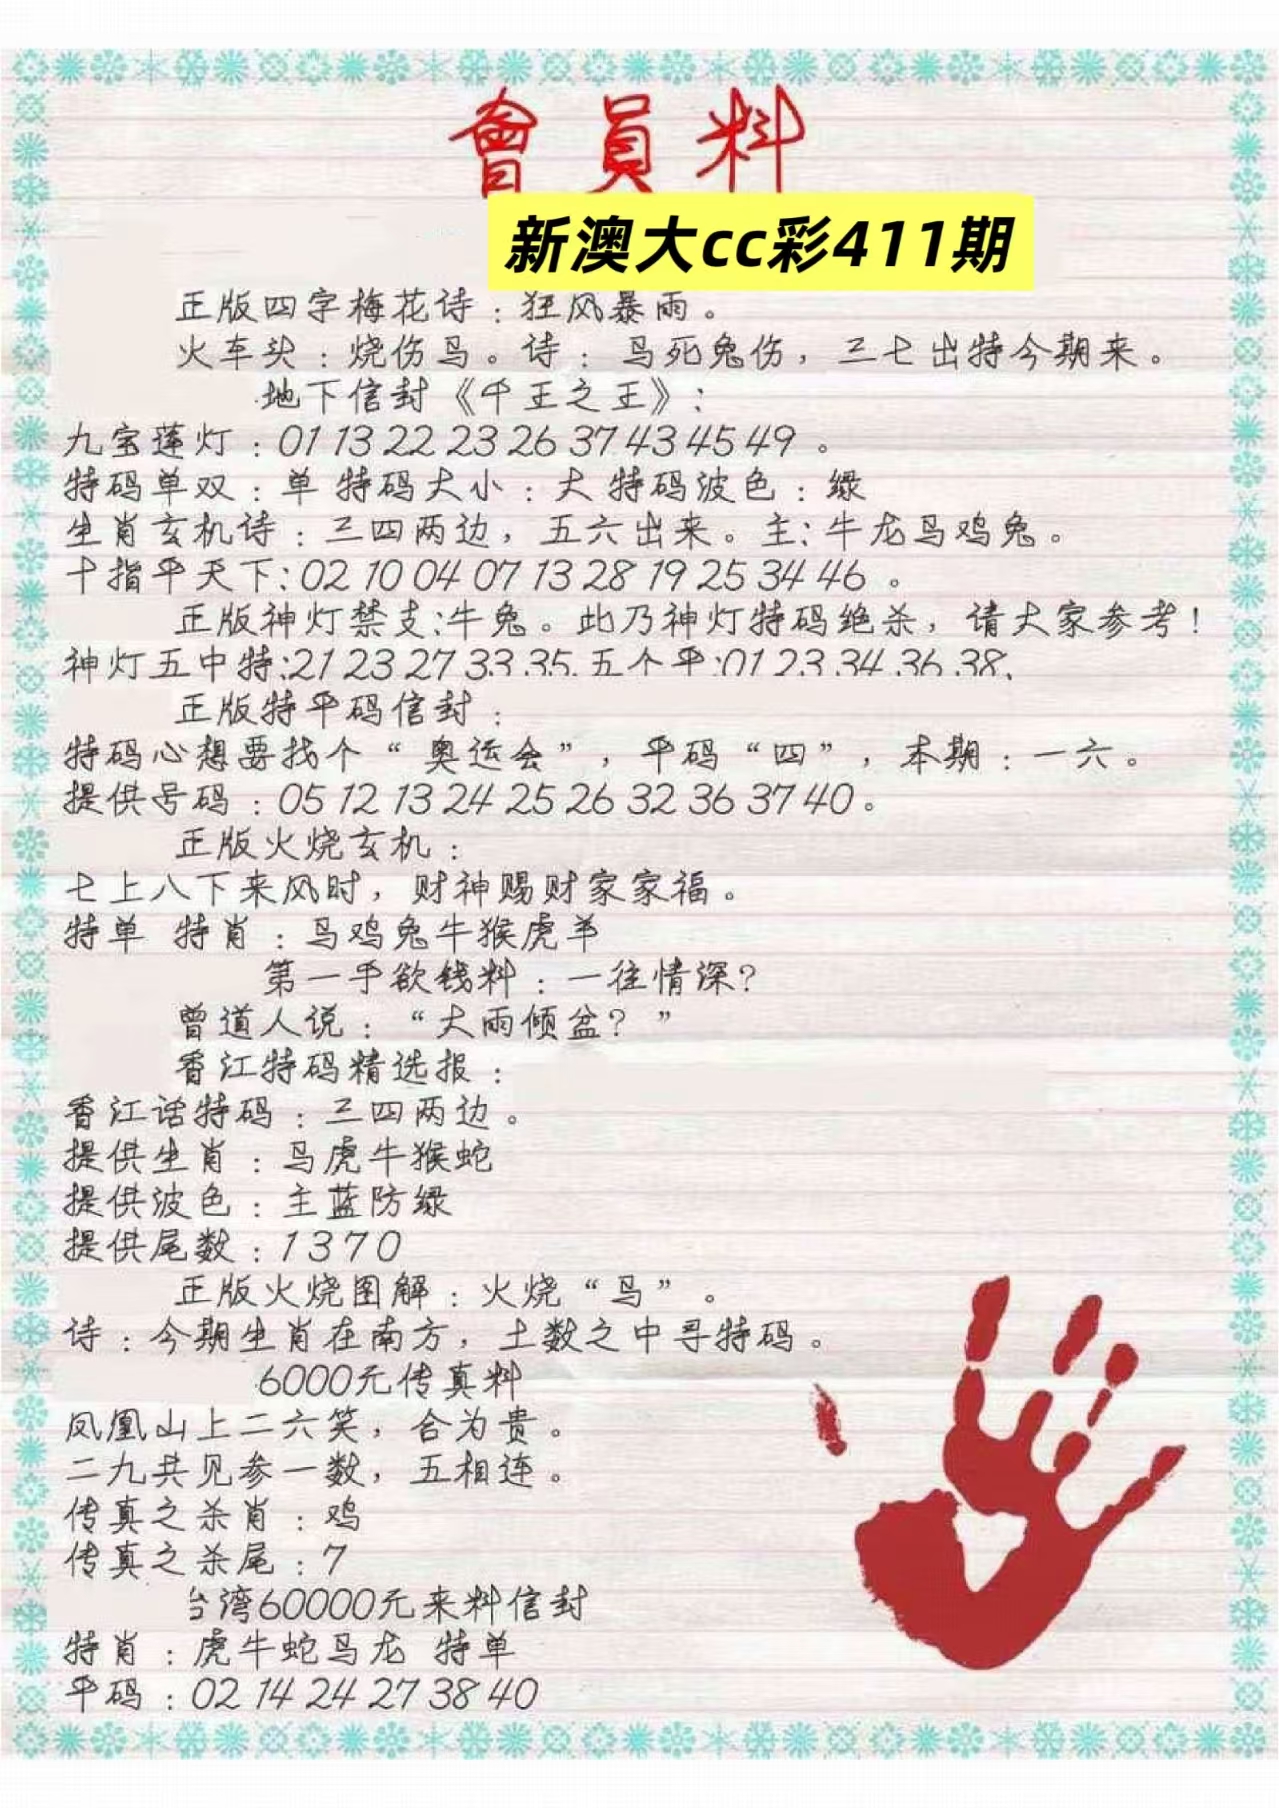 會員料
新澳大cc彩411期
正版四字梅花诗：狂风暴雨。
火车头：烧伤马。诗：马死兔伤，三七出特今期来。
地下信封《千王之王》：
九宝莲灯：01 13 22 23 26 37 43 45 49。
特码单双：单 特码大小：大 特码波色：绿
生肖玄机诗：三四两边，五六出来。主：牛龙马鸡兔。
十指平天下：02 10 04 07 13 28 19 25 34 46。
正版神灯禁支：牛兔。此乃神灯特码绝杀，请大家参考！
神灯五中特：21 23 27 33 35. 五个平：01 23 34 36 38.
正版特平码信封：
特码心想要找个“奥运会”，平码“四”，本期：一六。
提供号码：05 12 13 24 25 26 32 36 37 40。
正版火烧玄机：
七上八下来风时，财神赐财家家福。
特单 特肖：马鸡兔牛猴虎羊
第一手欲钱料：一往情深？
曾道人说：“大雨倾盆？”
香江特码精选报：
香江话特码：三四两边。
提供生肖：马虎牛猴蛇
提供波色：主蓝防绿
提供尾数：1 3 7 0
正版火烧图解：火烧“马”。
诗：今期生肖在南方，土数之中寻特码。
6000元传真料
凤凰山上二六笑，合为贵。
二九共见参一数，五相连。
传真之杀肖：鸡
传真之杀尾：7
台湾60000元来料信封
特肖：虎牛蛇马龙 特单
平码：02 14 24 27 38 40